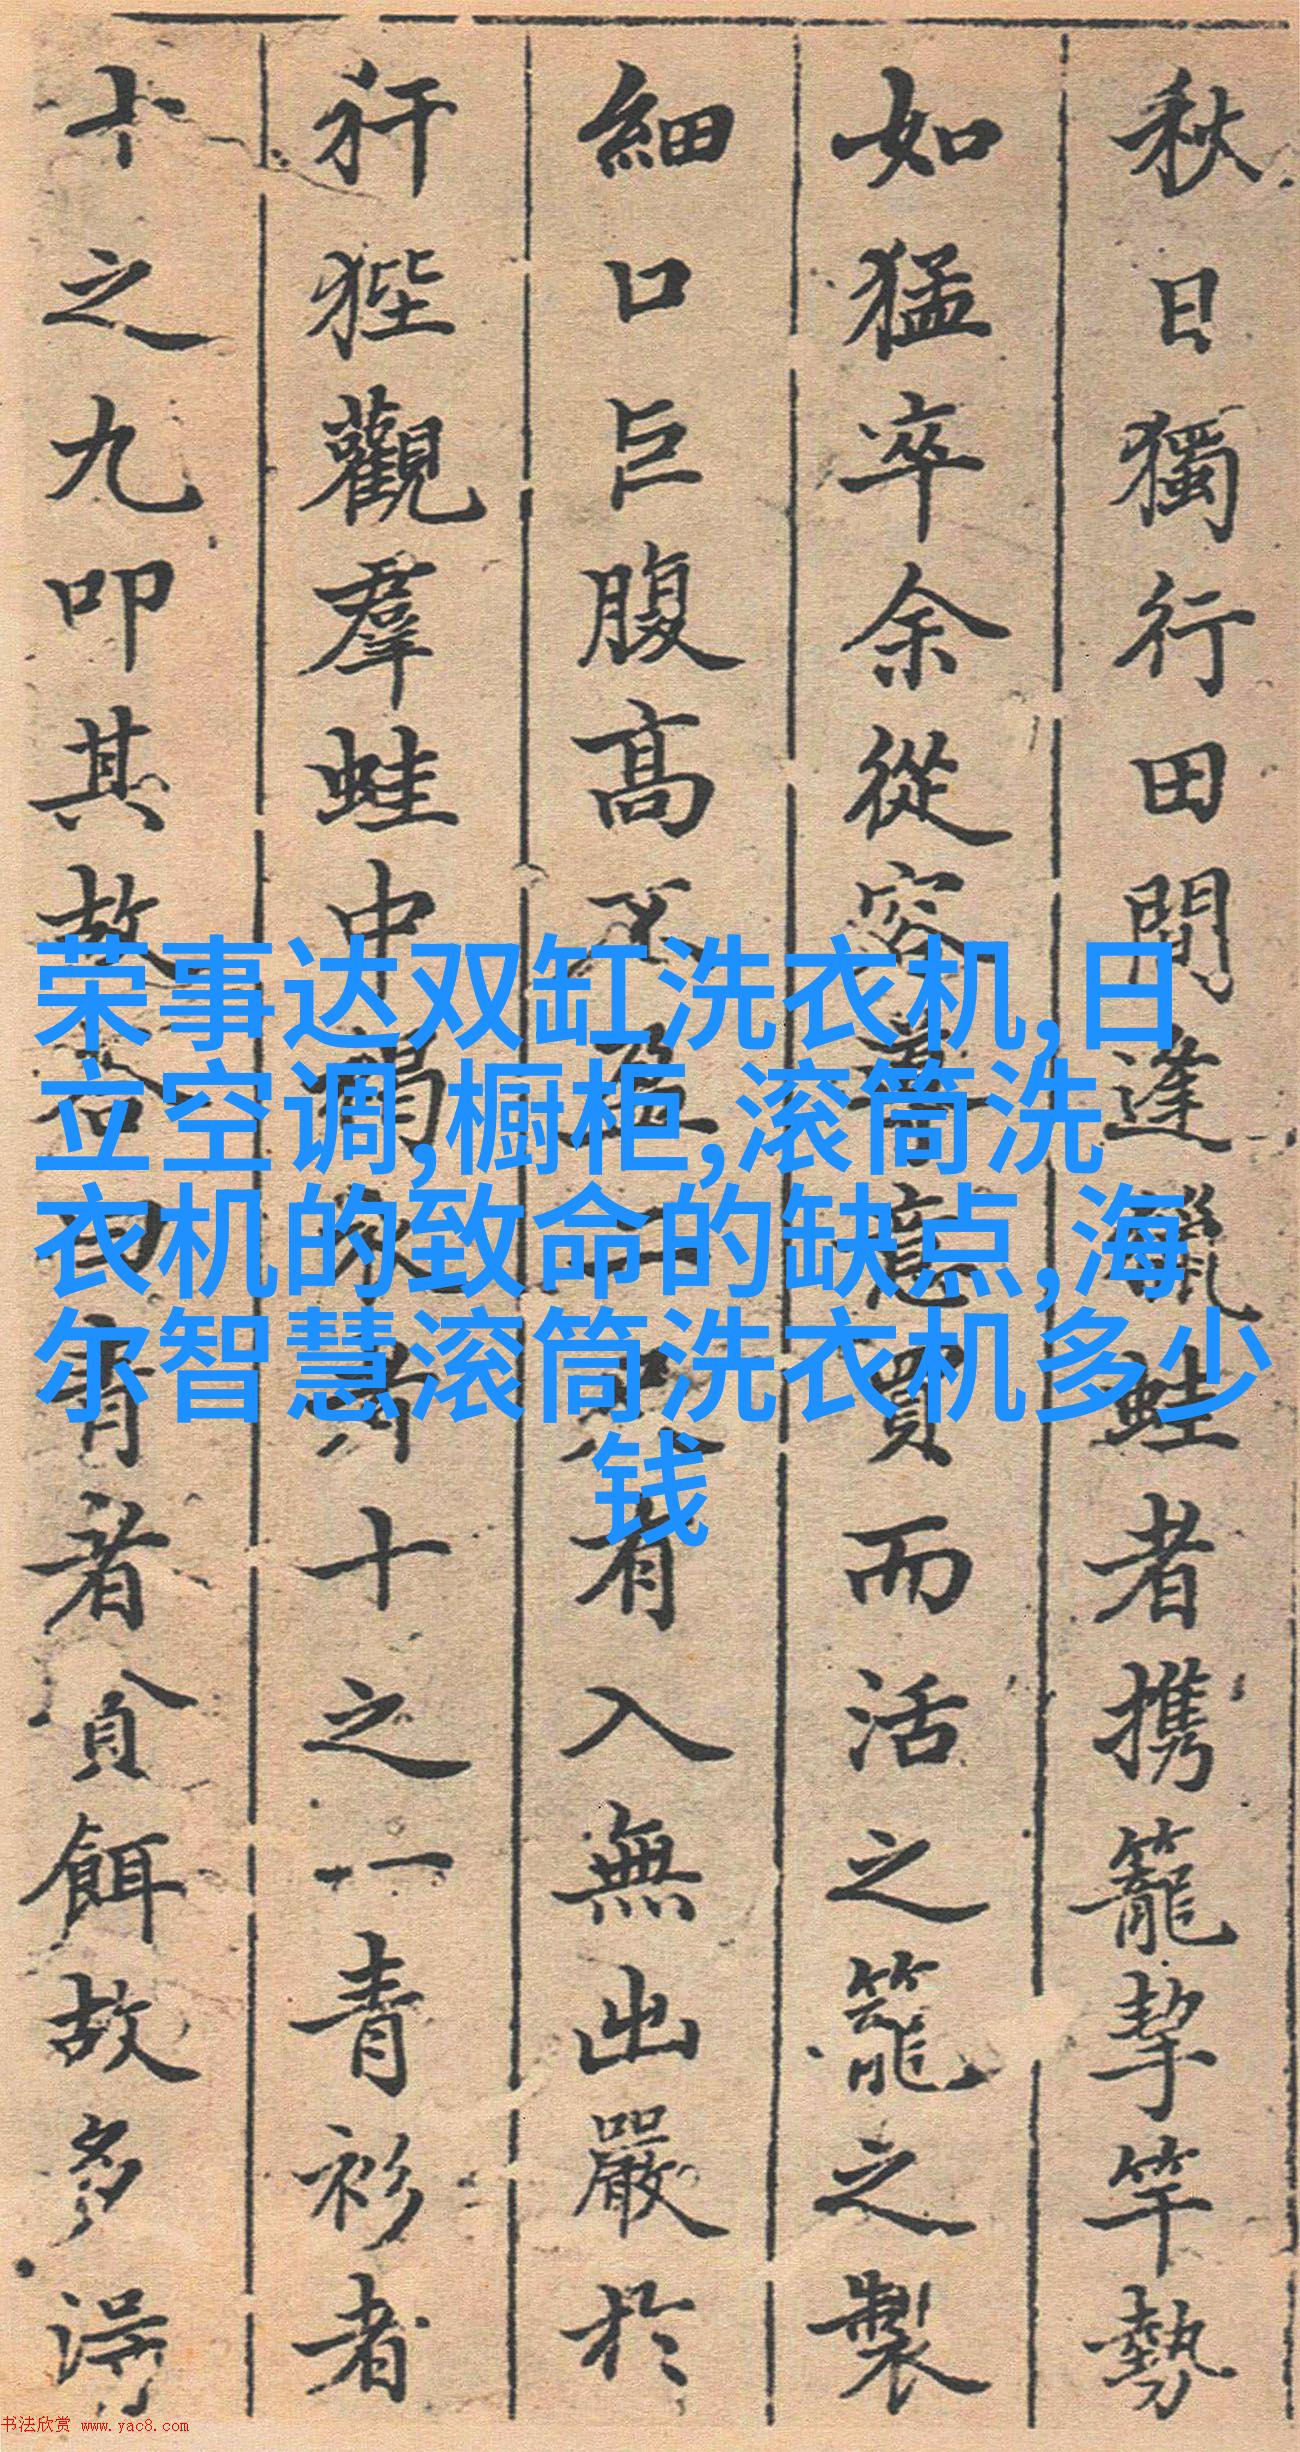 秋日獨行田間逢蛙者携籠挈竿勢
如猛卒余從容買而活之籠之製
細口巨腹高有入無出嚴於
犴狴觀羣蛙中十之一青衫者
十之九叩其故曰青者貪餌故多得
荣事达双缸洗衣机,日
立空调,橱柜,滚筒洗
衣机的致命的缺点,海
尔智慧滚筒洗衣机多少
钱
书法欣赏 www.yac8.com